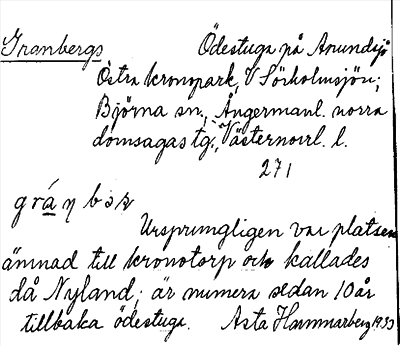 Granbergs Ödestuga på Anundsjö
Östra kronopark, V Sörholmsjön;
Björna sn., Ångermanl. norra
domsagas tg., Västernorrl. l.
271
Ursprungligen var platsen
ämnad till kronotorp och kallades
då Nyland; är numera sedan 10 år
tillbaka ödestuga. Asta Hammarberg 1933